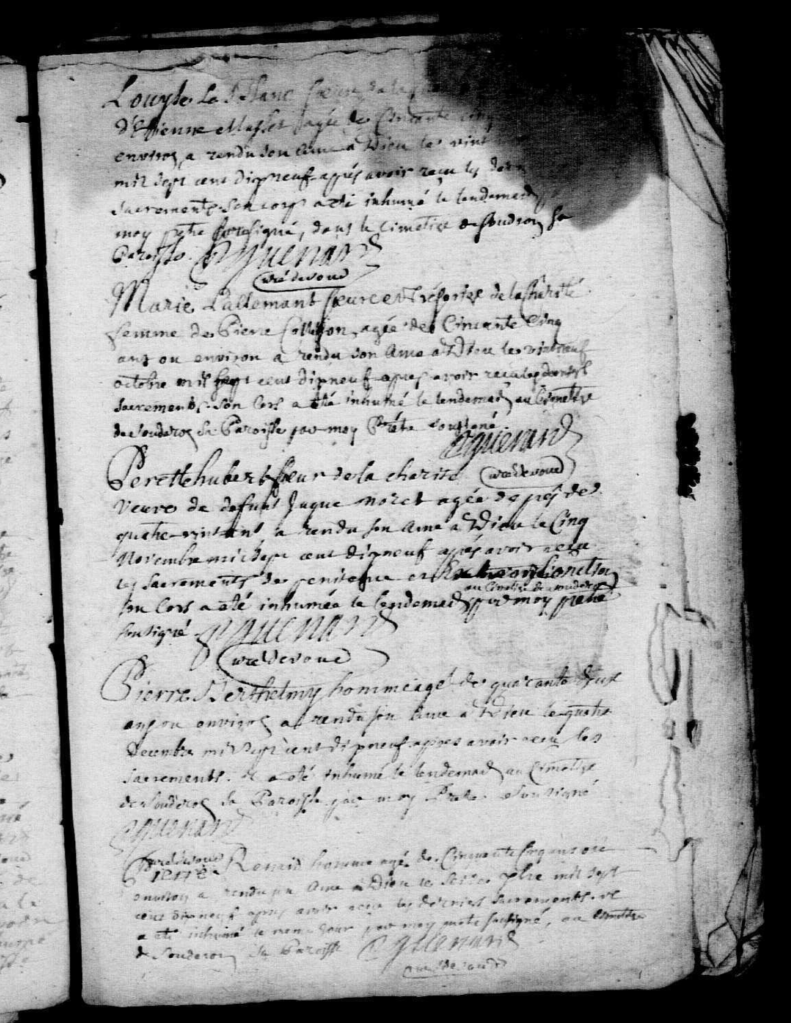 Louyse Le Blanc sœur de la
d'Estienne Masset agée de Cincante Cinq
environ a rendu son ame a Dieu le vint
mil sept cent dixneuf apprés avoir reçu les dern
sacrements son corps a été inhumé le lendemain
moy prtre soussigné, dans le Cimetiere de Soudron sa
Paroisse. Guenard
curé de voue
Marie Lallemant sœur et Trésoriere de la charité
femme de Pierre Collson, agée de Cincante Cinq
ans ou environ a rendu son Ame a Dieu le vintneuf
octobre mil sept cent dixneuf apres avoir receu les derniers
sacrements. son Cors a été inhumé le lendemain au Cimetiere
de Souderon sa Paroisse par moy Prétre soussigné
Guenard
curé de voue
Perette hubert sœur de la charité
veuve de defunt Jaque Moret agée de prés de
quatre vint ans a rendu son Ame a Dieu le Cinq
Novembre mil sept cent dixneuf apprés avoir receu
les sacrements de penitence et
au Cimetiere de Souderon
son Cors a été inhumée le lendemain par moy prétre
soutigné Guenard
curé de voue
Pierre Berthelmy homme agé de quarante deux
ans ou environ a rendu son Ame a Dieu le quatre
Decembre mil sept cent dixneuf apres avoir receu les
sacrements. a été inhumé le lendemain au Cimetiere
de Souderon sa Paroisse par moy Pretre soutigné
Guenard
curé de voue
Pierre Renard homme agé de Cinquante Cinq ans ou
environ a rendu son Ame a Dieu le seize xbre mil sept
cent dixneuf apres avoir receu les derniers sacrements. et
a été inhumé le mem Jour par moy pretre soutigné, au Cimetiere
de Souderon sa Paroisse Guenard
curé de voue